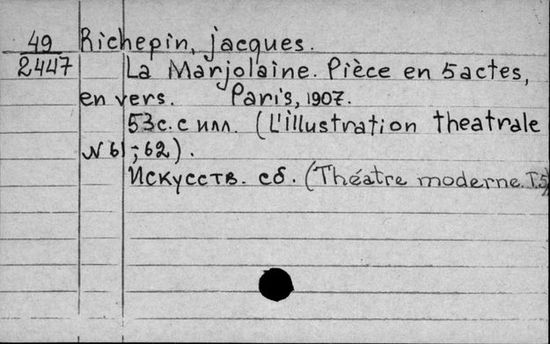 49 Richepin, jacques.
2447 La Marjolaine. Pièce en 5 actes,
en vers. Paris, 1907.
53 с. с илл. (L'illustration theatrale
N 61; 62).
Искусств. сб. (Théatre moderne. T.5)